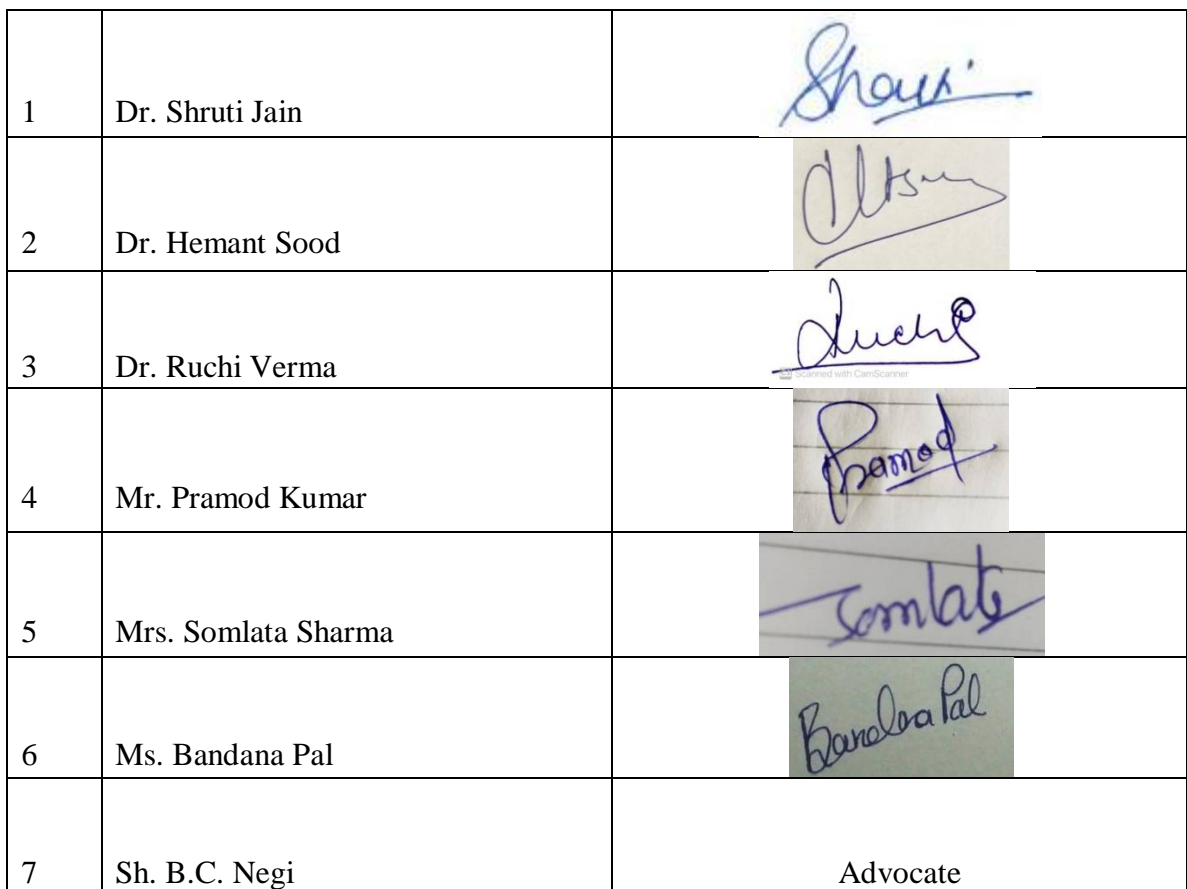 1 Dr. Shruti Jain Shruti
2 Dr. Hemant Sood
3 Dr. Ruchi Verma Ruchi
Scanned with CamScanner
4 Mr. Pramod Kumar Pramod
5 Mrs. Somlata Sharma Somlata
6 Ms. Bandana Pal Bandana Pal
7 Sh. B.C. Negi Advocate